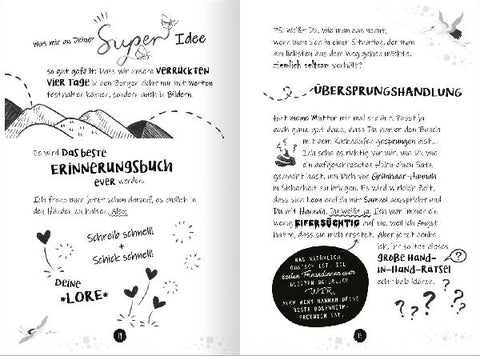 Was mir an Deiner Super Idee
so gut gefällt: Dass wir unsere VERRÜCKTEN
VIER TAGE in den Bergen nicht nur mit Worten
festhalten können, sondern auch in Bildern.
Es wird Das beste
ERINNERUNGSBUCH
ever werden.
Ich freue mich jetzt schon darauf, es endlich in
den Händen zu halten. Also:
Schreib schnell!
+
Schick schnell!
Deine
*LORE*
14
PS: Weißt Du, wie man das nennt,
wenn man sich in einer Situation, der man
am liebsten aus dem Weg gehen möchte,
ziemlich seltsam verhält?
ÜBERSPRUNGSHANDLUNG
hat meine Mutter mir mal erklärt. Passt ja
auch ganz gut dazu, dass Du hinter den Busch
mit dem Kuhfladen gesprungen bist...
Ich sehe es richtig vor mir, wie Du wie
ein aufgeschrecktes Huhn einen Satz
gemacht hast, um Dich vor
in Sicherheit zu bringen. Es wird wirklich Zeit,
dass sich Leon und Du mit Samuel aussprecht und
Du mit Hannah. Du weißt ja: Ich war immer ein
wenig EIFERSÜCHTIG auf sie, weil ich Angst
hatte, dass sie mich ersetzt. Aber jetzt denke
ich, ihr solltet dieses
GROẞE HAND-
IN-HAND-RÄTSEL
echt mal klären.
WAS NATÜRLICH
QUATSCH IST. DIE
besten Freundinnen ever
BLEIBEN NATÜRLICH
WIR.
AUCH WENN HANNAH DEINE
BESTE ROSENHEIM-
FREUNDIN IST.
15